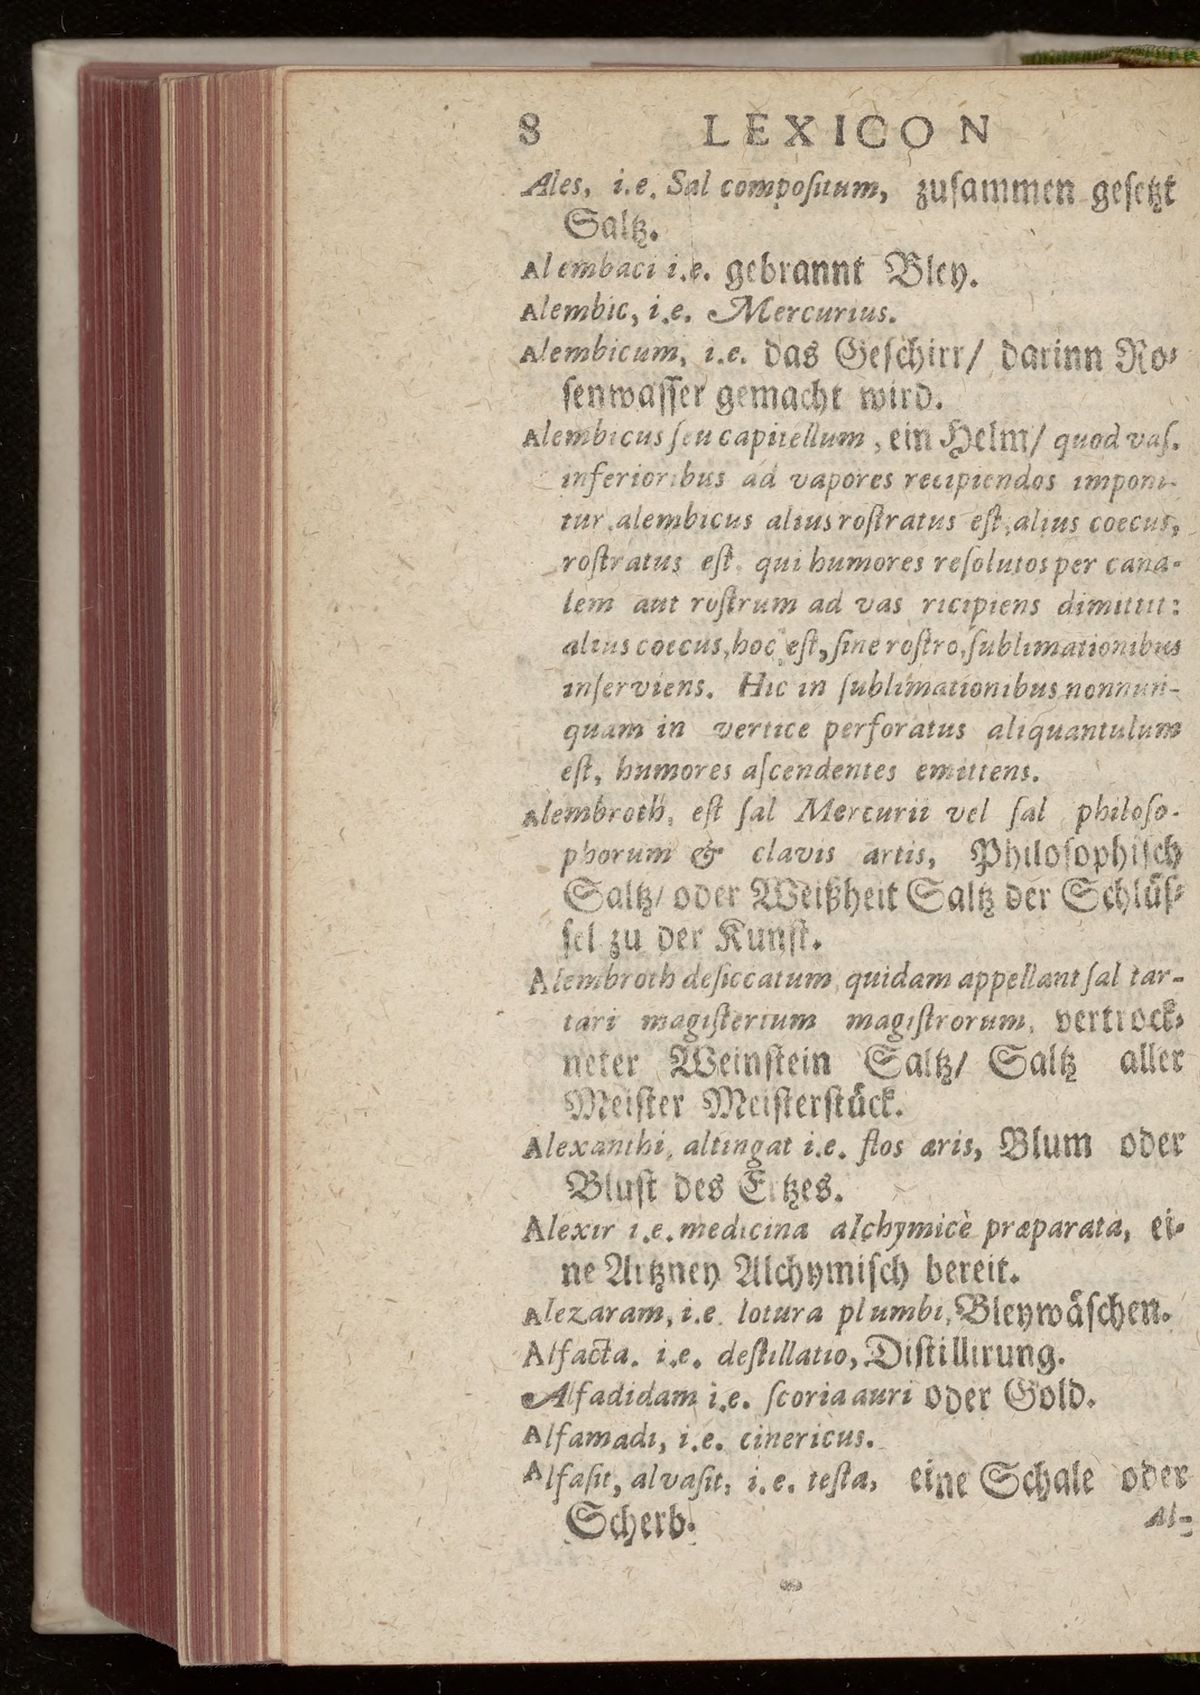 8 LEXICON
Ales, i.e. Sal compoſitum, zuſammen geſetzt
Saltz.
Alembaci i.e. gebrannt Bley.
Alembic, i.e. Mercurius.
Alembicum, i.e. das Geſchirr/ darinn Ro⸗
ſenwaſſer gemacht wird.
Alembicus ſeu capitellum, ein Helm/ quod vaſ.
inferioribus ad vapores recipiendos imponi-
tur. alembicus alius roſtratus eſt, alius coecus,
roſtratus eſt qui humores reſolutos per cana-
lem aut roſtrum ad vas ricipiens dimittit:
alius coecus, hoc eſt, ſine roſtro, ſublimationibus
inſerviens. Hic in ſublimationibus nonnun-
quam in vertice perforatus aliquantulum
eſt, humores aſcendentes emittens.
Alembroth, eſt ſal Mercurii vel ſal philoſo-
phorum & clavis artis, Philoſophiſch
Saltz/ oder Weißheit Saltz der Schlüſ⸗
ſel zu der Kunſt.
Alembroth deſiccatum, quidam appellant ſal tar-
tari magiſterium magiſtrorum, vertrock⸗
neter Weinſtein Saltz/ Saltz aller
Meiſter Meiſterſtück.
Alexanthi, altingat i.e. flos æris, Blum oder
Bluſt des Ertzes.
Alexir i.e. medicina alchymicè præparata, ei⸗
ne Artzney Alchymiſch bereit.
Alezaram, i.e. lotura plumbi, Bleywäſchen.
Alfacta. i.e. deſtillatio, Diſtillirung.
Alfadidam i.e. ſcoria auri oder Gold.
Alfamadi, i.e. cinericus.
Alfaſit, alvaſit, i.e. teſta, eine Schale oder
Scherb.
Al-